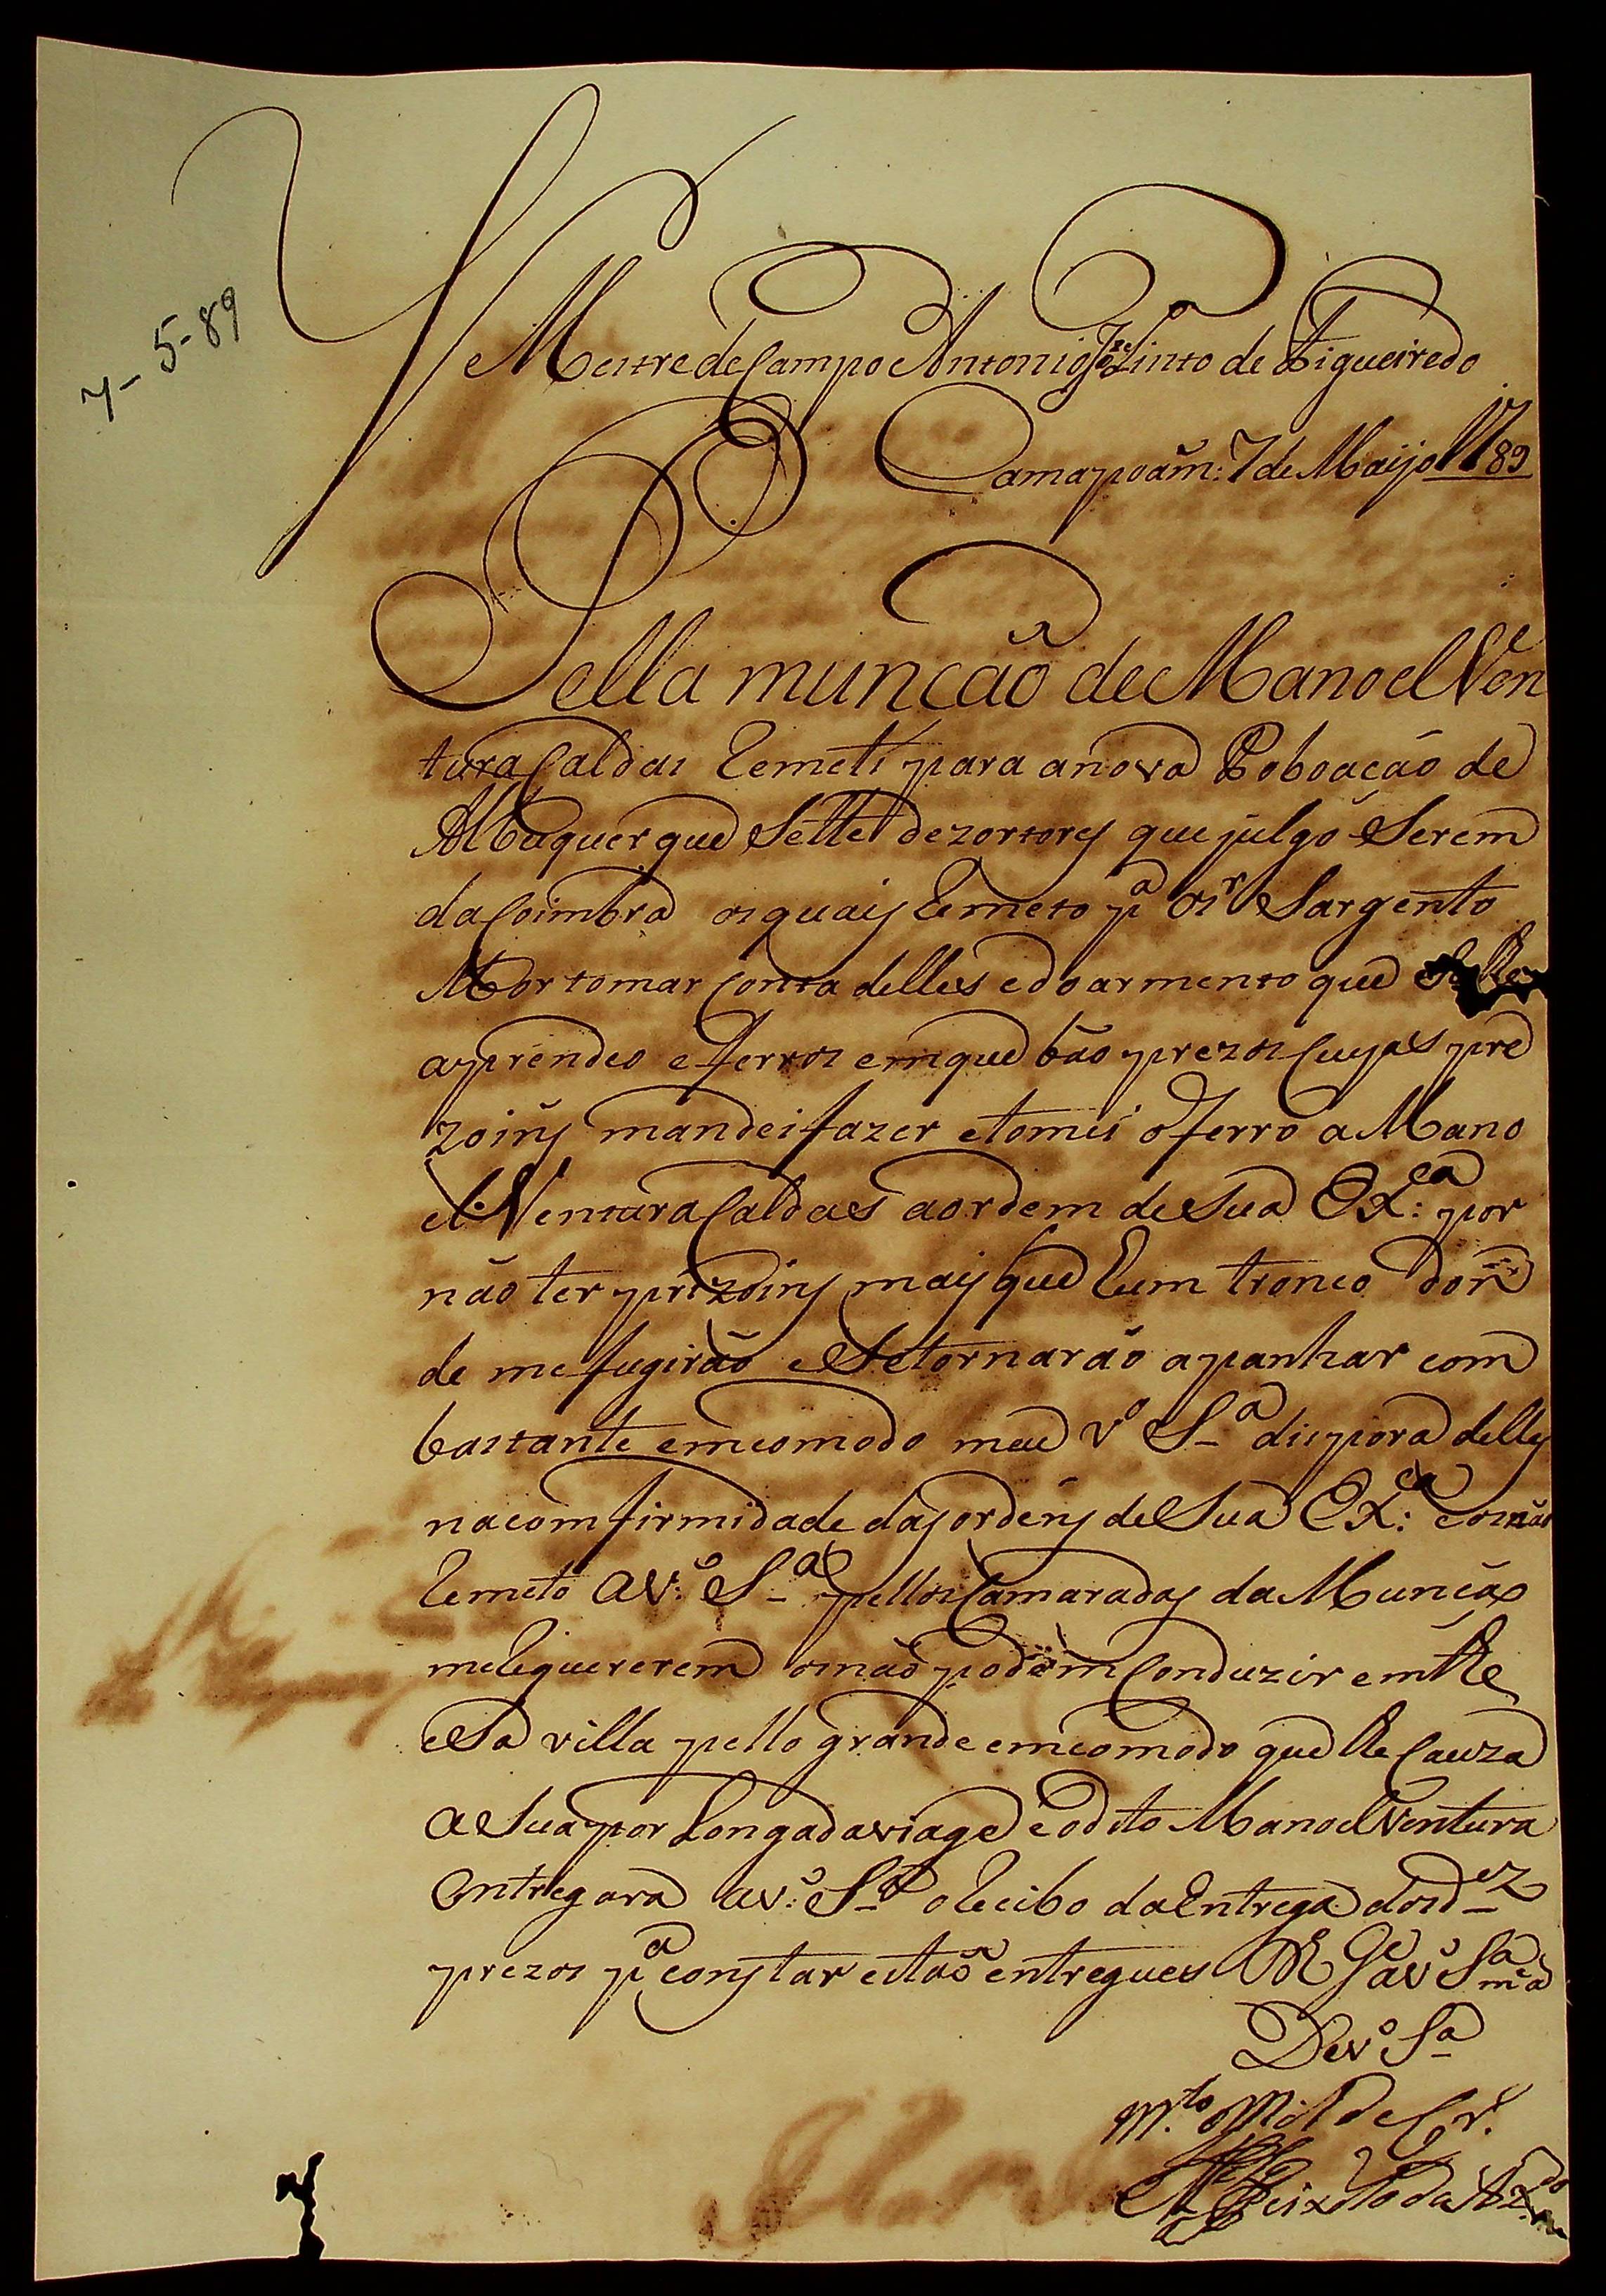 7-5-89
Mestre de Campo Antonio Joze Pinto de Figueiredo
Camapoãm: 7 de Maijo 1789
Pella munção de Manoel Ven
tura Caldas Remeti para a nova Poboação de
Albuquerque Sette dezortores que julgo Serem
da Coimbra os quais Remeto pa o Sr Sargento
Mor tomar Conta delles e do armento que
aprendeo e ferros em que bão prezos Cuyas pre
zoins mandei fazer e tomei o ferro a Mano
el Ventura Caldas a ordem de Sua Exca: por
não ter prizoins mais que hum tronco don
de me fugirão e Se tornarão apanhar com
bastante emcomodo meu Vo Sa dispora delles
na comfirmidade das ordens de Sua Exca: e os não
Remeto a Vo: Sa pellos Camaradas da Munção
me Requererem os não podem Conduzir emthe
esa villa pello grande emcomodo que lhe Cauza
a Sua por Longada viage e o dito Manoel Ventura
Entregara a Vo: Sa o Recibo da Entrega dos dez
prezos pa constar estão entregues Ds Ge a Vo Sa ms as
De Vo Sa
Mto
Peixoto de Azdo